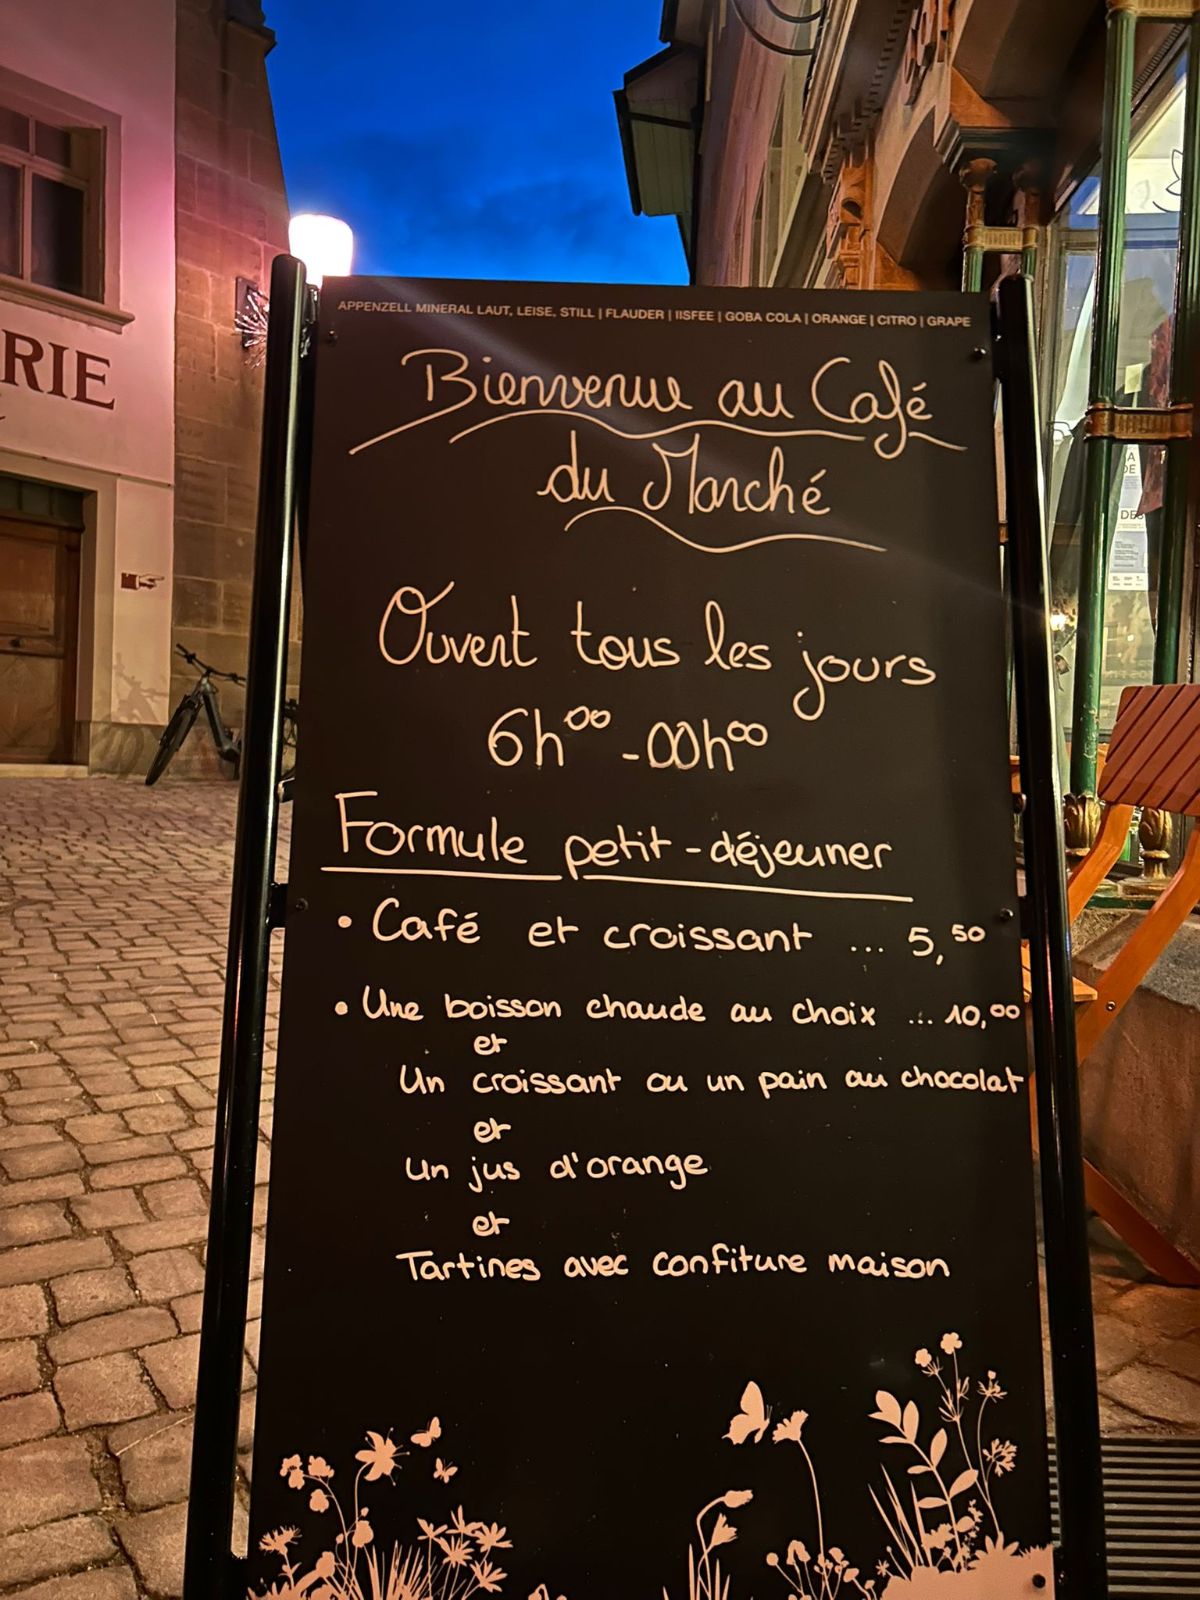 APPENZELL MINERAL LAUT, LEISE, STILL | FLAUDER | IISFEE | GOBA COLA | ORANGE | CITRO | GRAPE
Bienvenue au Café
du Marché
Ouvert tous les jours
6h00 - 00h00
Formule petit-déjeuner
• Café et croissant ... 5,50
• Une boisson chaude au choix ... 10,00
et
Un croissant ou un pain au chocolat
et
un jus d'orange
et
Tartines avec confiture maison
RIE